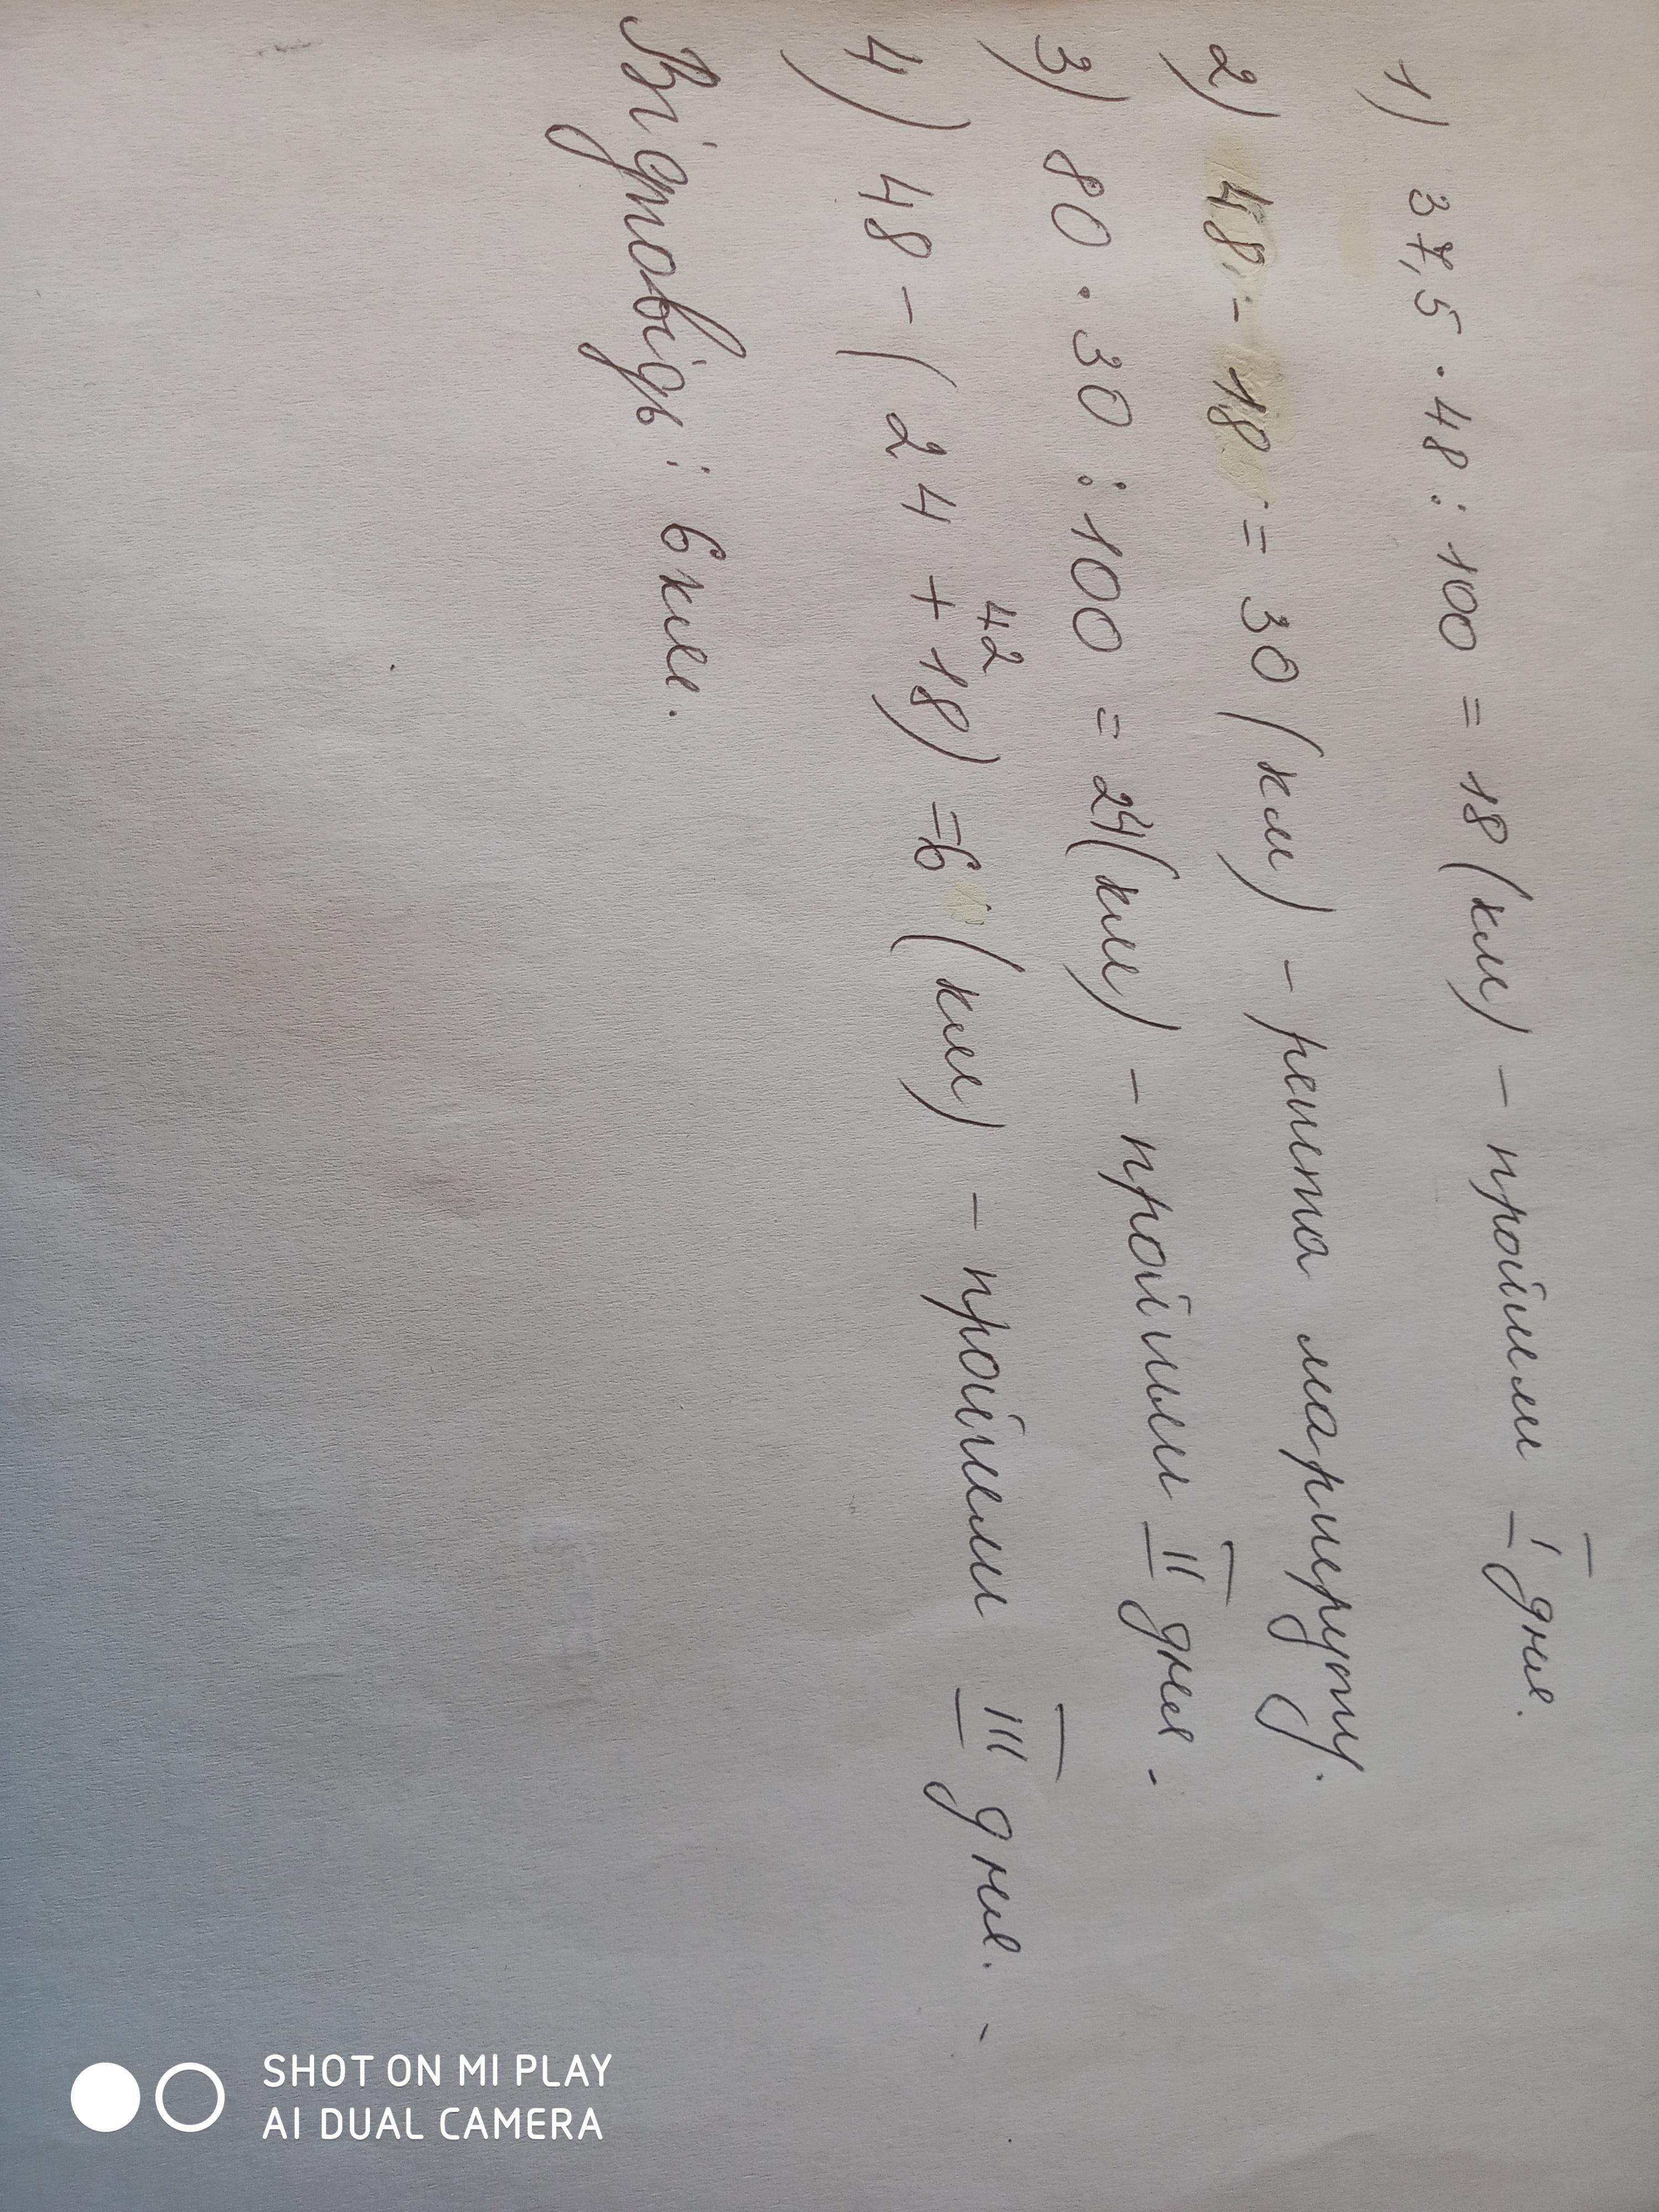 1) 37,5 · 48 : 100 = 18 (км) – пройшли I дня.
2) 48 - 18 = 30 (км) – решта маршруту.
3) 80 · 30 : 100 = 24 (км) – пройшли II дня.
42
4) 48 - (24 + 18) = 6 (км) – пройшли III дня.
Відповідь: 6 км.
SHOT ON MI PLAY
AI DUAL CAMERA